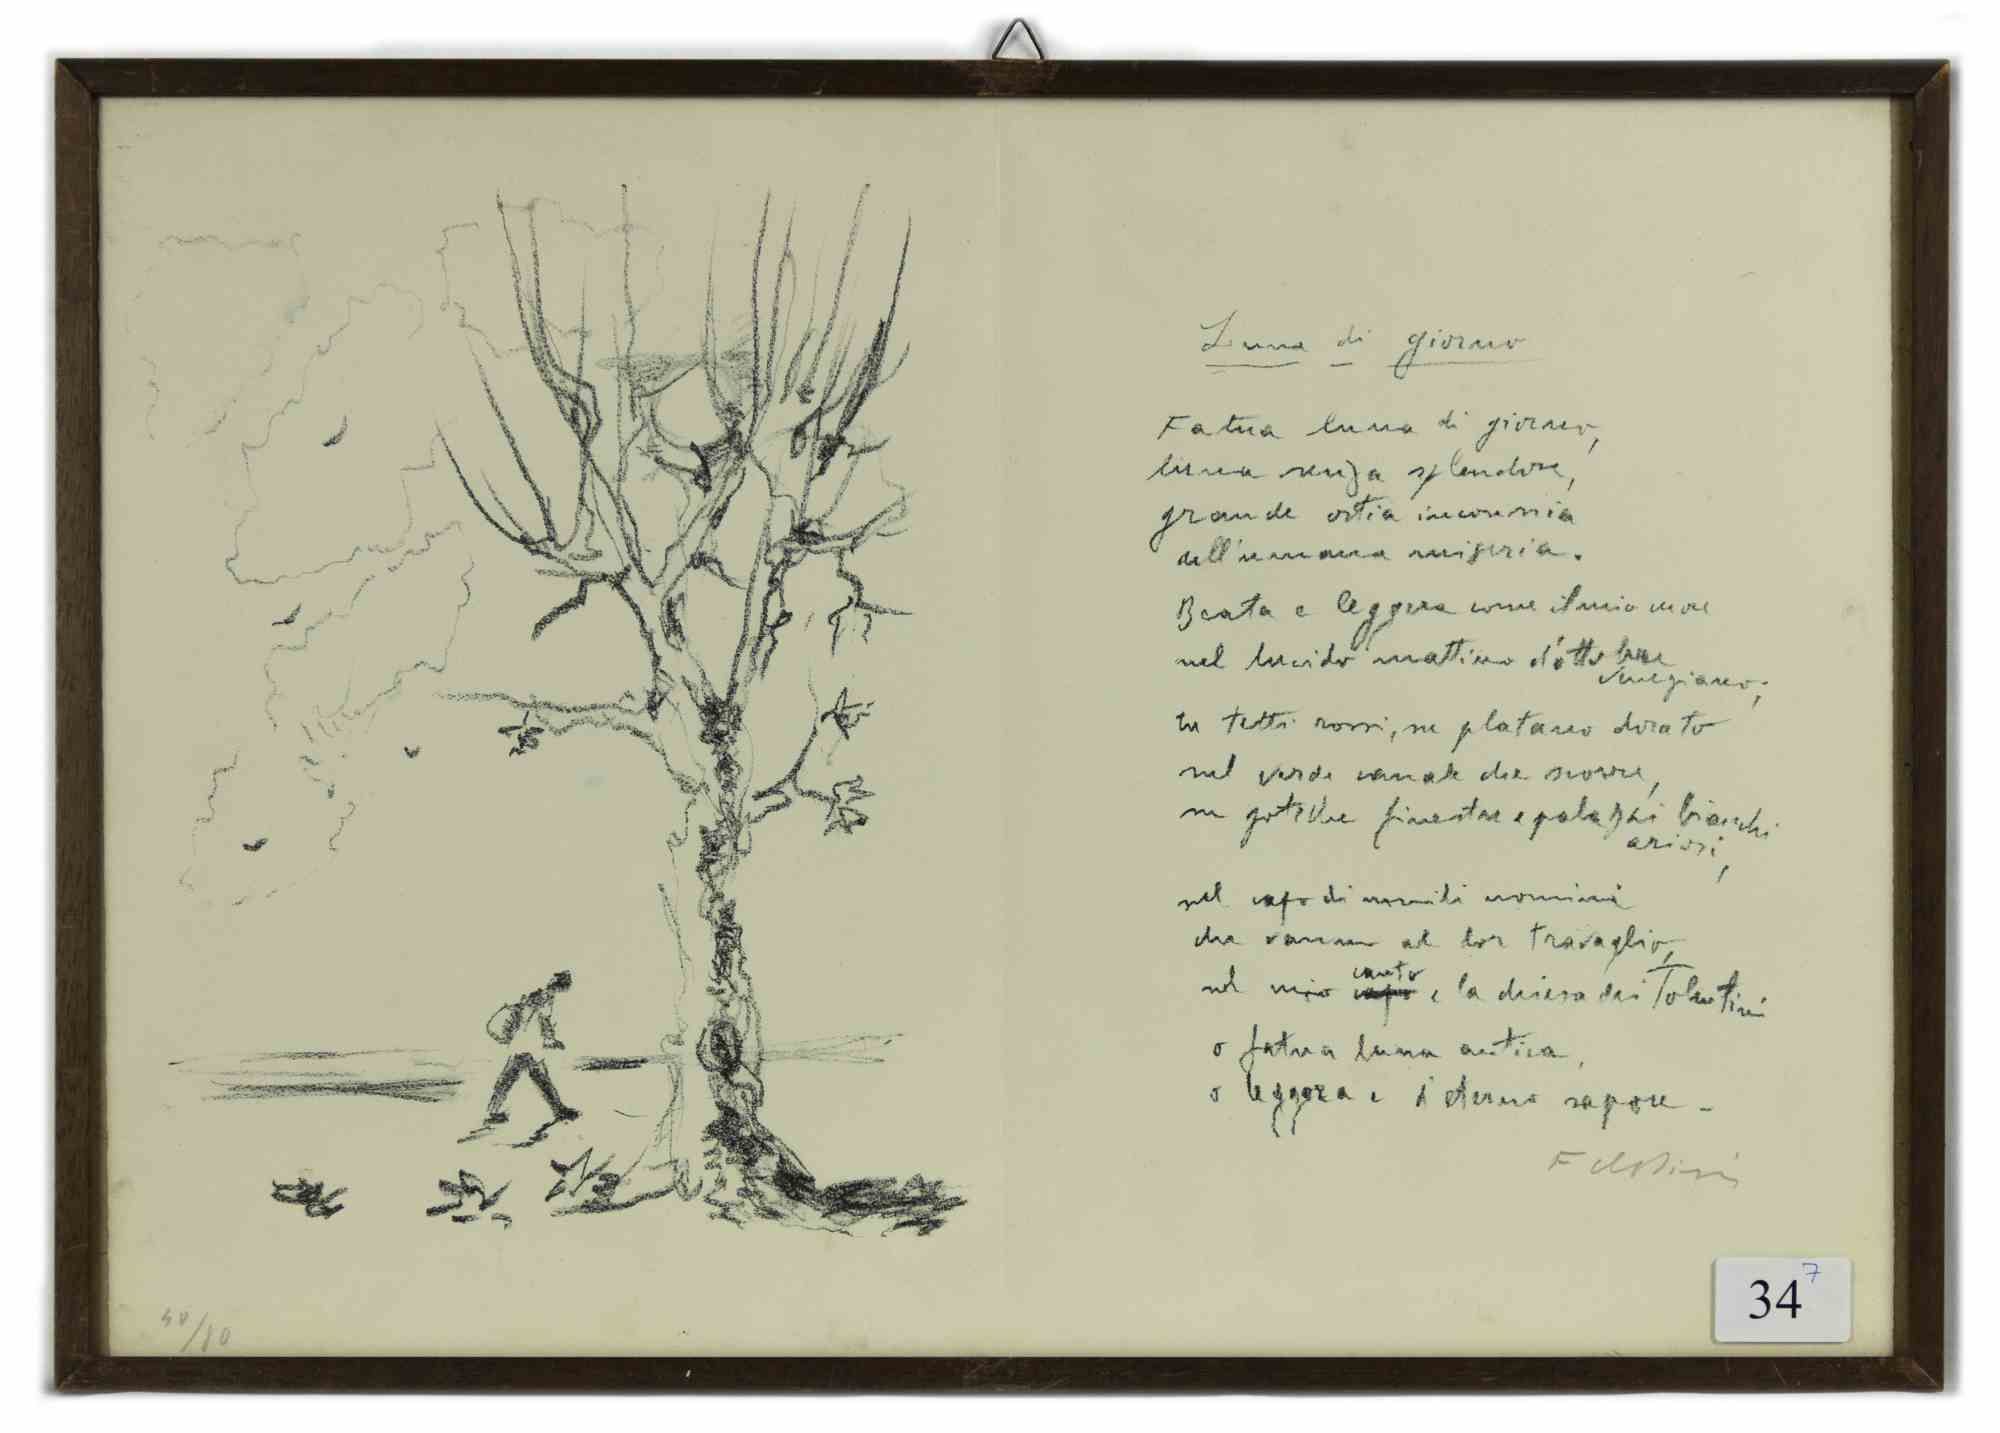 Luna di giorno
Fatua luna di giorno,
luna senza splendore,
grande ostia inconscia
dell'umana miseria.
Beata e leggera come il mio cuore
nel lucido mattino d'ottobre
veneziano;
su tetti rossi, su platano dorato
nel verde canale che scorre,
su gotiche finestre e palazzi bianchi
ariosi,
nel capo di umili uomini
che vanno al lor travaglio,
canto
nel mio capo e la chiesa dei Tolentini
o fatua luna antica,
o leggera e d'eterno sapore -
F de Pisis
40/80
34
7